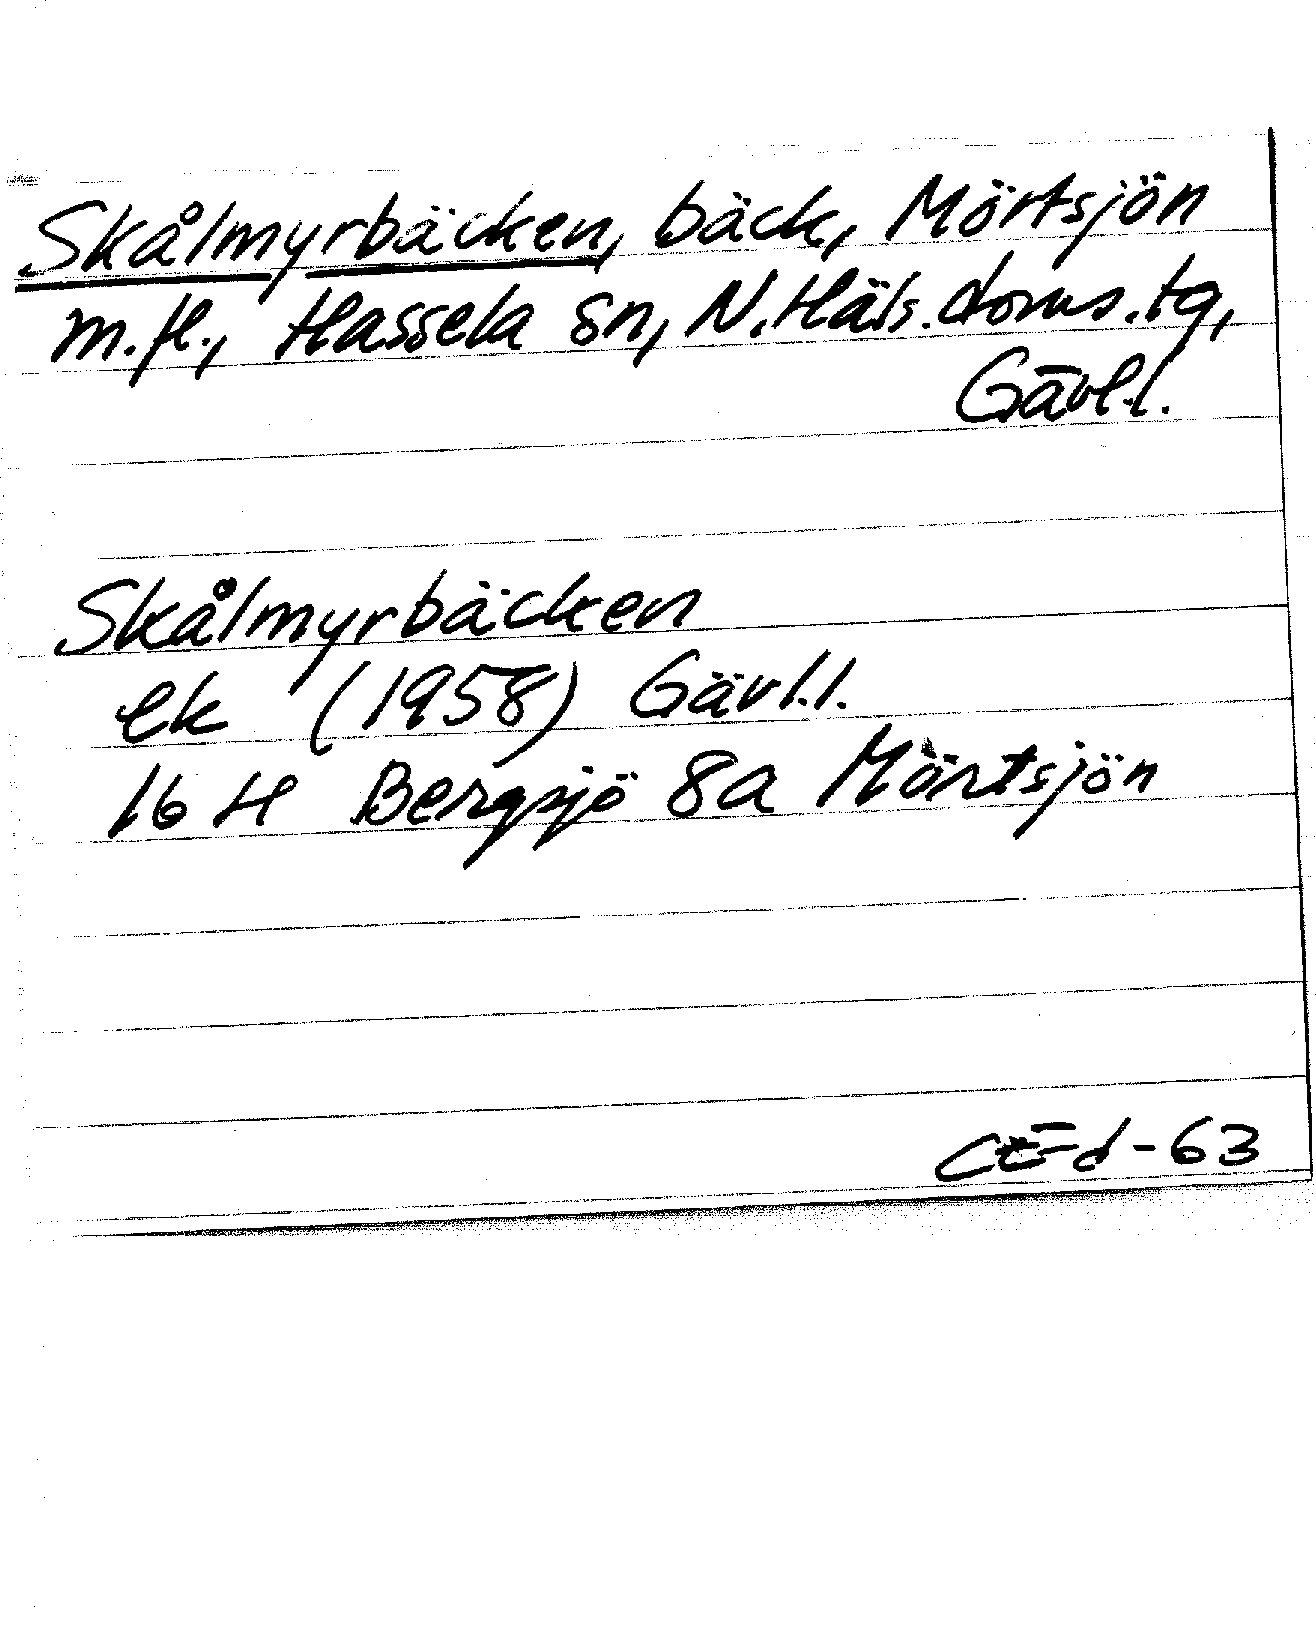 Skålmyrbäcken, bäck, Mörtsjön
m.fl., Hassela sn, N.Häls.doms.tg,
Gävl.l.
Skålmyrbäcken
ek (1958) Gävl.l.
16 H Bergsjö 8a Mörtsjön
CEd-63